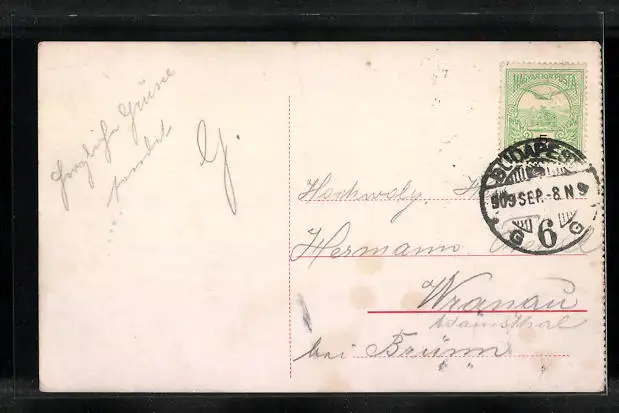 Herzliche Grüsse
sendet
G.
MAGYAR KIR. POSTA
5
BUDAPEST
909 SEP. -8. N 9
G 6 G
Hochwolg.
Hermann
Wranau
Adamsthal
bei Brünn